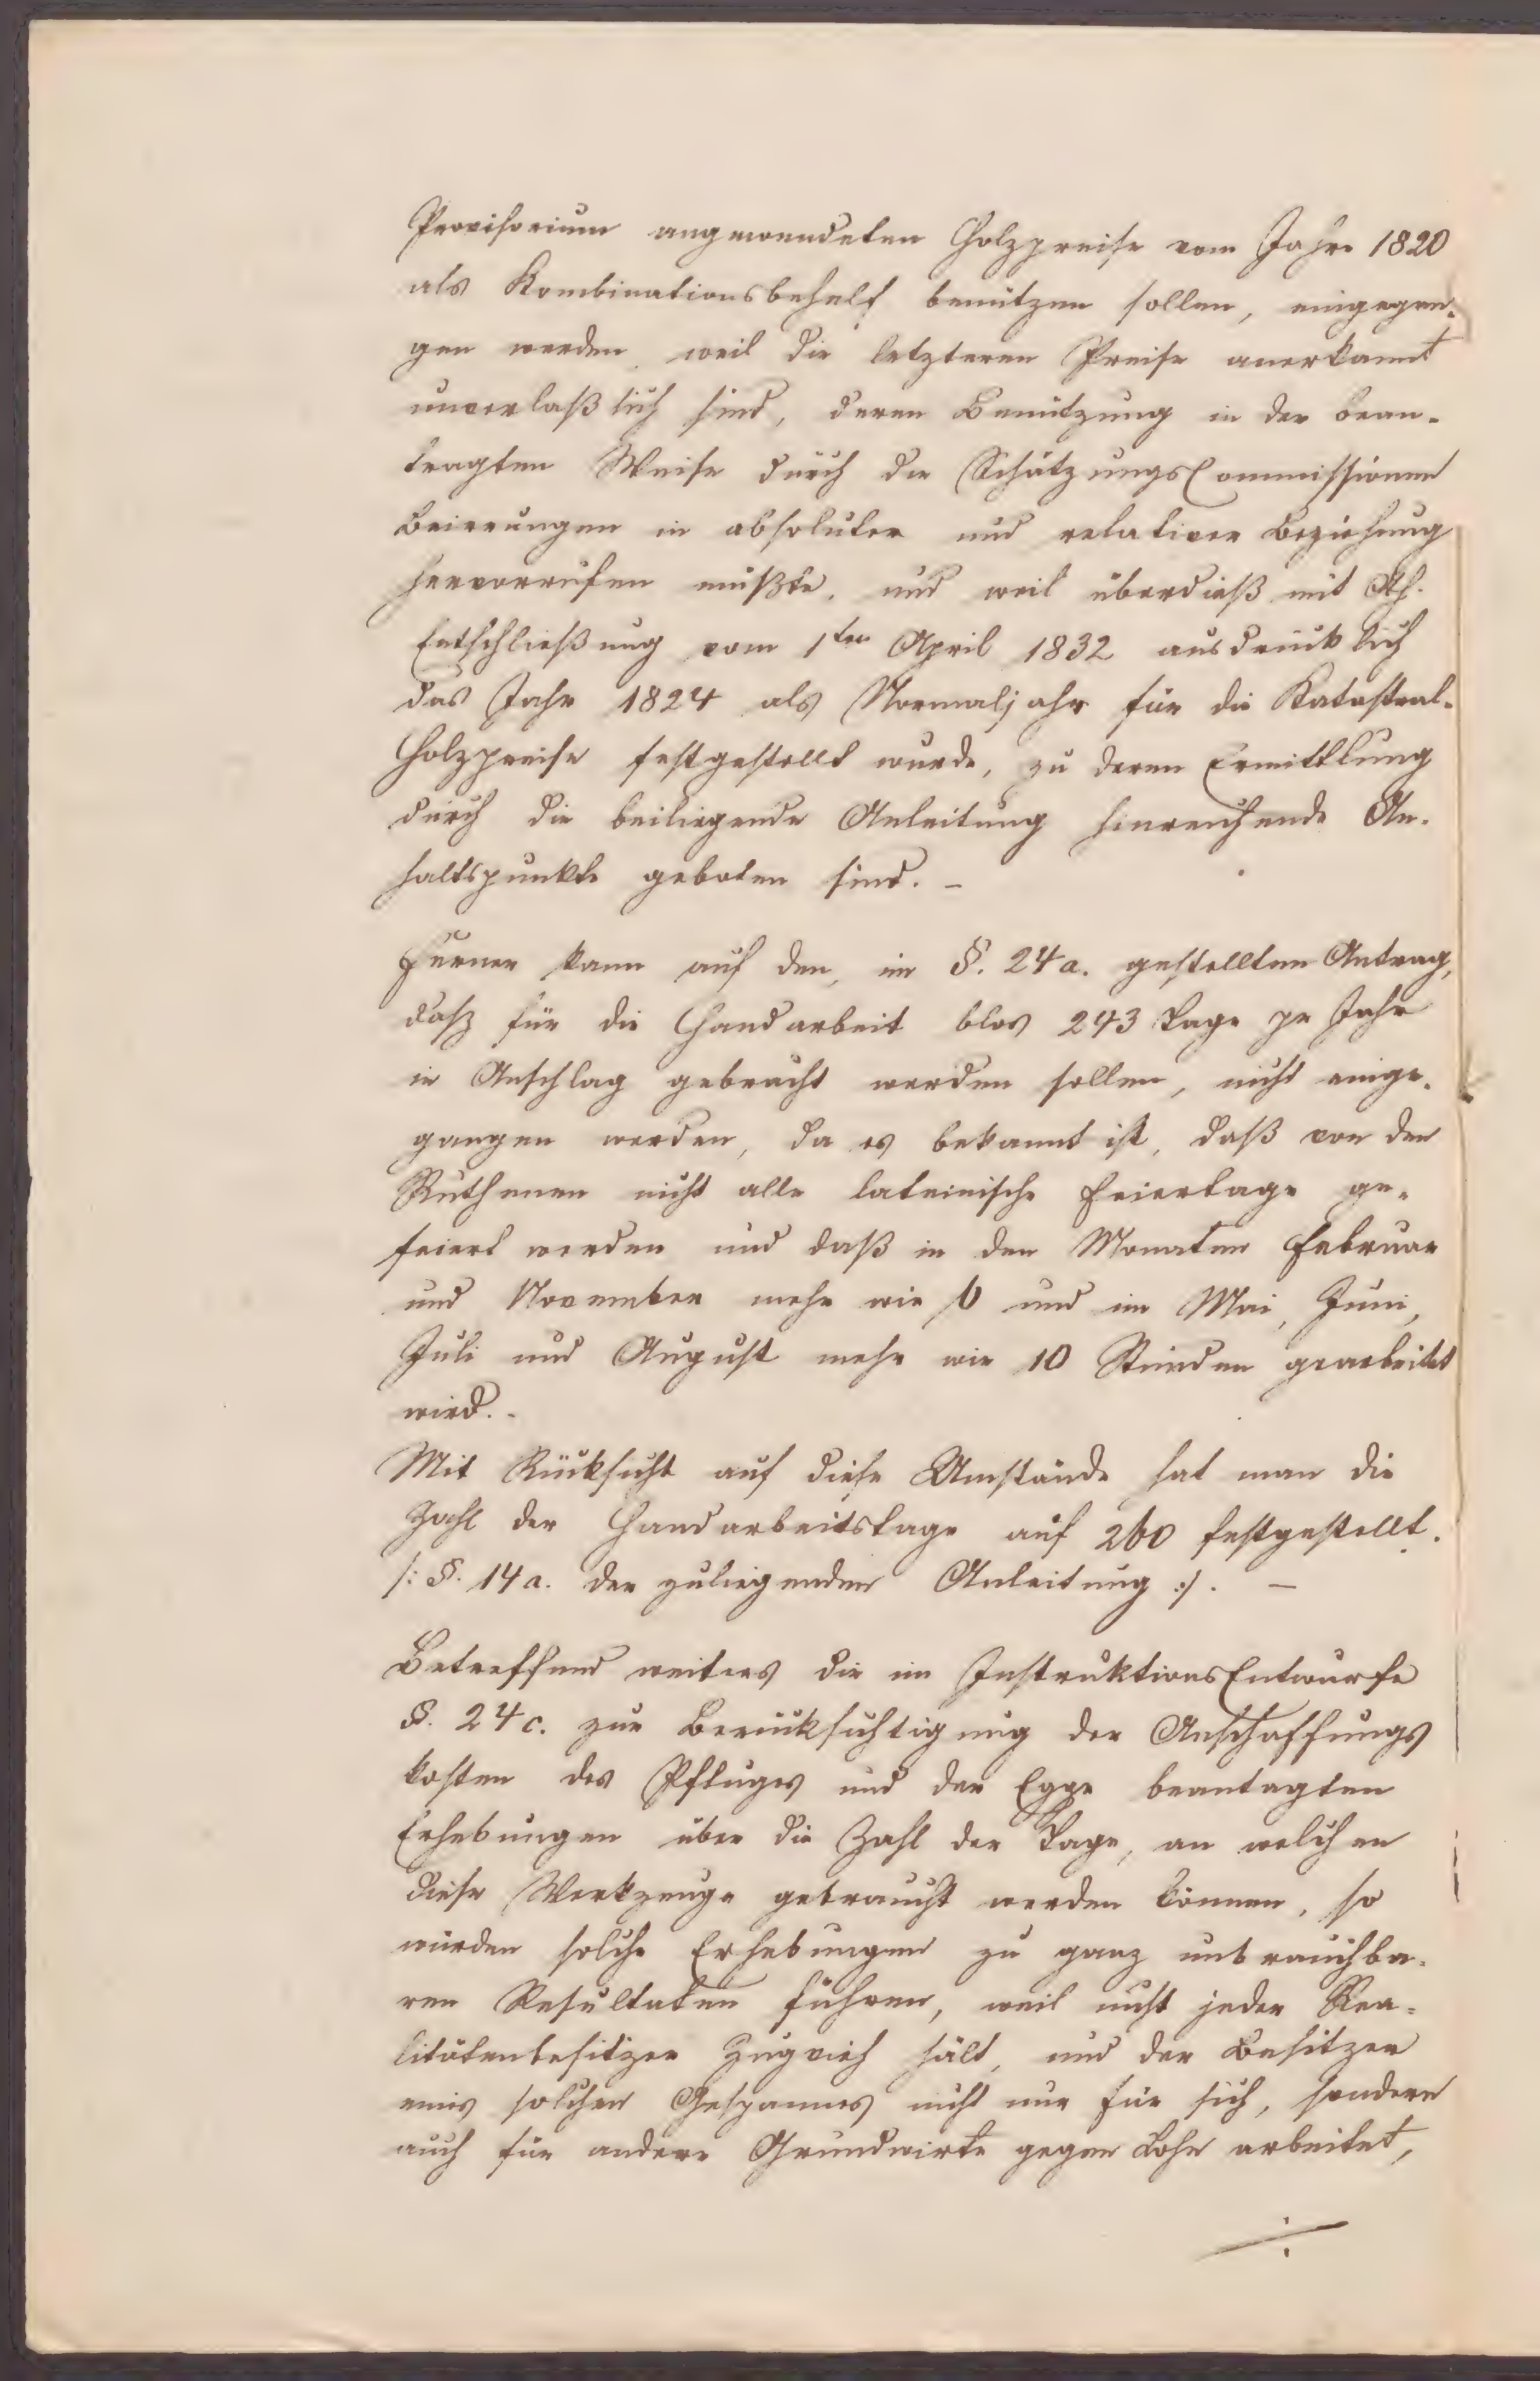 Provisorium angewendeten Holzpreise vom Jahre 1820
als Kombinationsbehelf benützen sollen, eingegan-
gen werden, weil die letzteren Preise anerkannt
unverlaßlich sind, deren Benützung in der bean-
tragten Weise durch die SchätzungsCommissionen
Beirrungen in absoluter und relativer Beziehung
hervorrufen müßte, und weil überdieß mit Ah.
Entschließung vom 1ten April 1832 ausdrücklich
das Jahr 1824 als Normaljahr für die Katastral-
Holzpreise festgestellt wurde, zu deren Ermittlung
durch die beiliegende Anleitung hinreichende An-
haltspunkte geboten sind. –
Ferner kann auf den, im §. 24a. gestellten Antrag,
dasz für die Handarbeit blos 243 Tage pr Jahr
in Anschlag gebracht werden sollen, nicht einge-
gangen werden, da es bekannt ist, daß von den
Ruthenen nicht alle lateinische Feiertage ge-
feiert werden und daß in den Monaten Februar
und November mehr wie 6 und im Mai, Juni,
Juli und August mehr wie 10 Stunden gearbeitet
wird. -
Mit Rücksicht auf diese Umstände hat man die
Zahl der Handarbeitstage auf 260 festgestellt.
/: §. 14a. der zuliegenden Anleitung :/. –
Betreffend weiters die im InstruktionsEntwurfe
§. 24c. zur Berücksichtigung der Anschaffungs
kosten des Pfluges und der Egge beantagten
Erhebungen über die Zahl der Tage, an welchen
diese Werkzeuge gebraucht werden können, so
würden solche Erhebungen zu ganz unbrauchba-
ren Resultaten führen, weil nicht jeder Rea-
litätenbesitzer Zugvieh hält, und der Besitzer
eines solchen Gespannes nicht nur für sich, sondern
auch für andere Grundwirte gegen Lohn arbeitet,